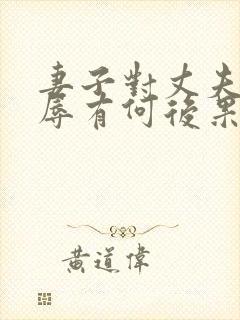 妻子對丈夫
辱有何後果
黃道偉